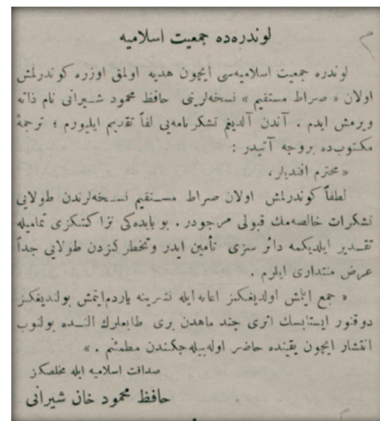 لوندره‌ده جمعیت اسلامیه
لوندره جمعیت اسلامیه‌سی ایچون هدیه اولمق اوزره کوندرلمش
اولان « صراط مستقیم » نسخه‌لرینی حافظ محمود شیرانی نام ذاته
ویرمش ایدم . آندن آلدیغم تشکرنامه‌یی لفاً تقدیم ایدیورم ؛ ترجمهٔ
مکتوب‌ده بروجه آتیدر :
« محترم افندیلر ،
لطفاً کوندرلمش اولان صراط مستقیم نسخه‌لرندن طولایی
تشکرات خالصه‌مك قبولی مرجودر . بو بابده‌کی نزاکتکزی تمامیله
تقدیر ایلدیکمه دائر سزی تأمین ایدر وتخطرکزدن طولایی جداً
عرض منتداری ایلرم .
« جمع ایتمش اولدیغکز اعانه ایله نشرینه یاردم ایتمش بولندیغکز
دوقتور ایستابسك اثری چند ماهدن بری طابعلرك النده بولنوب
انتشار ایچون یقینده حاضر اوله‌بیله‌جکندن مطمئنم . »
صداقت اسلامیه ایله مخلصکز
حافظ محمود خان شیرانی